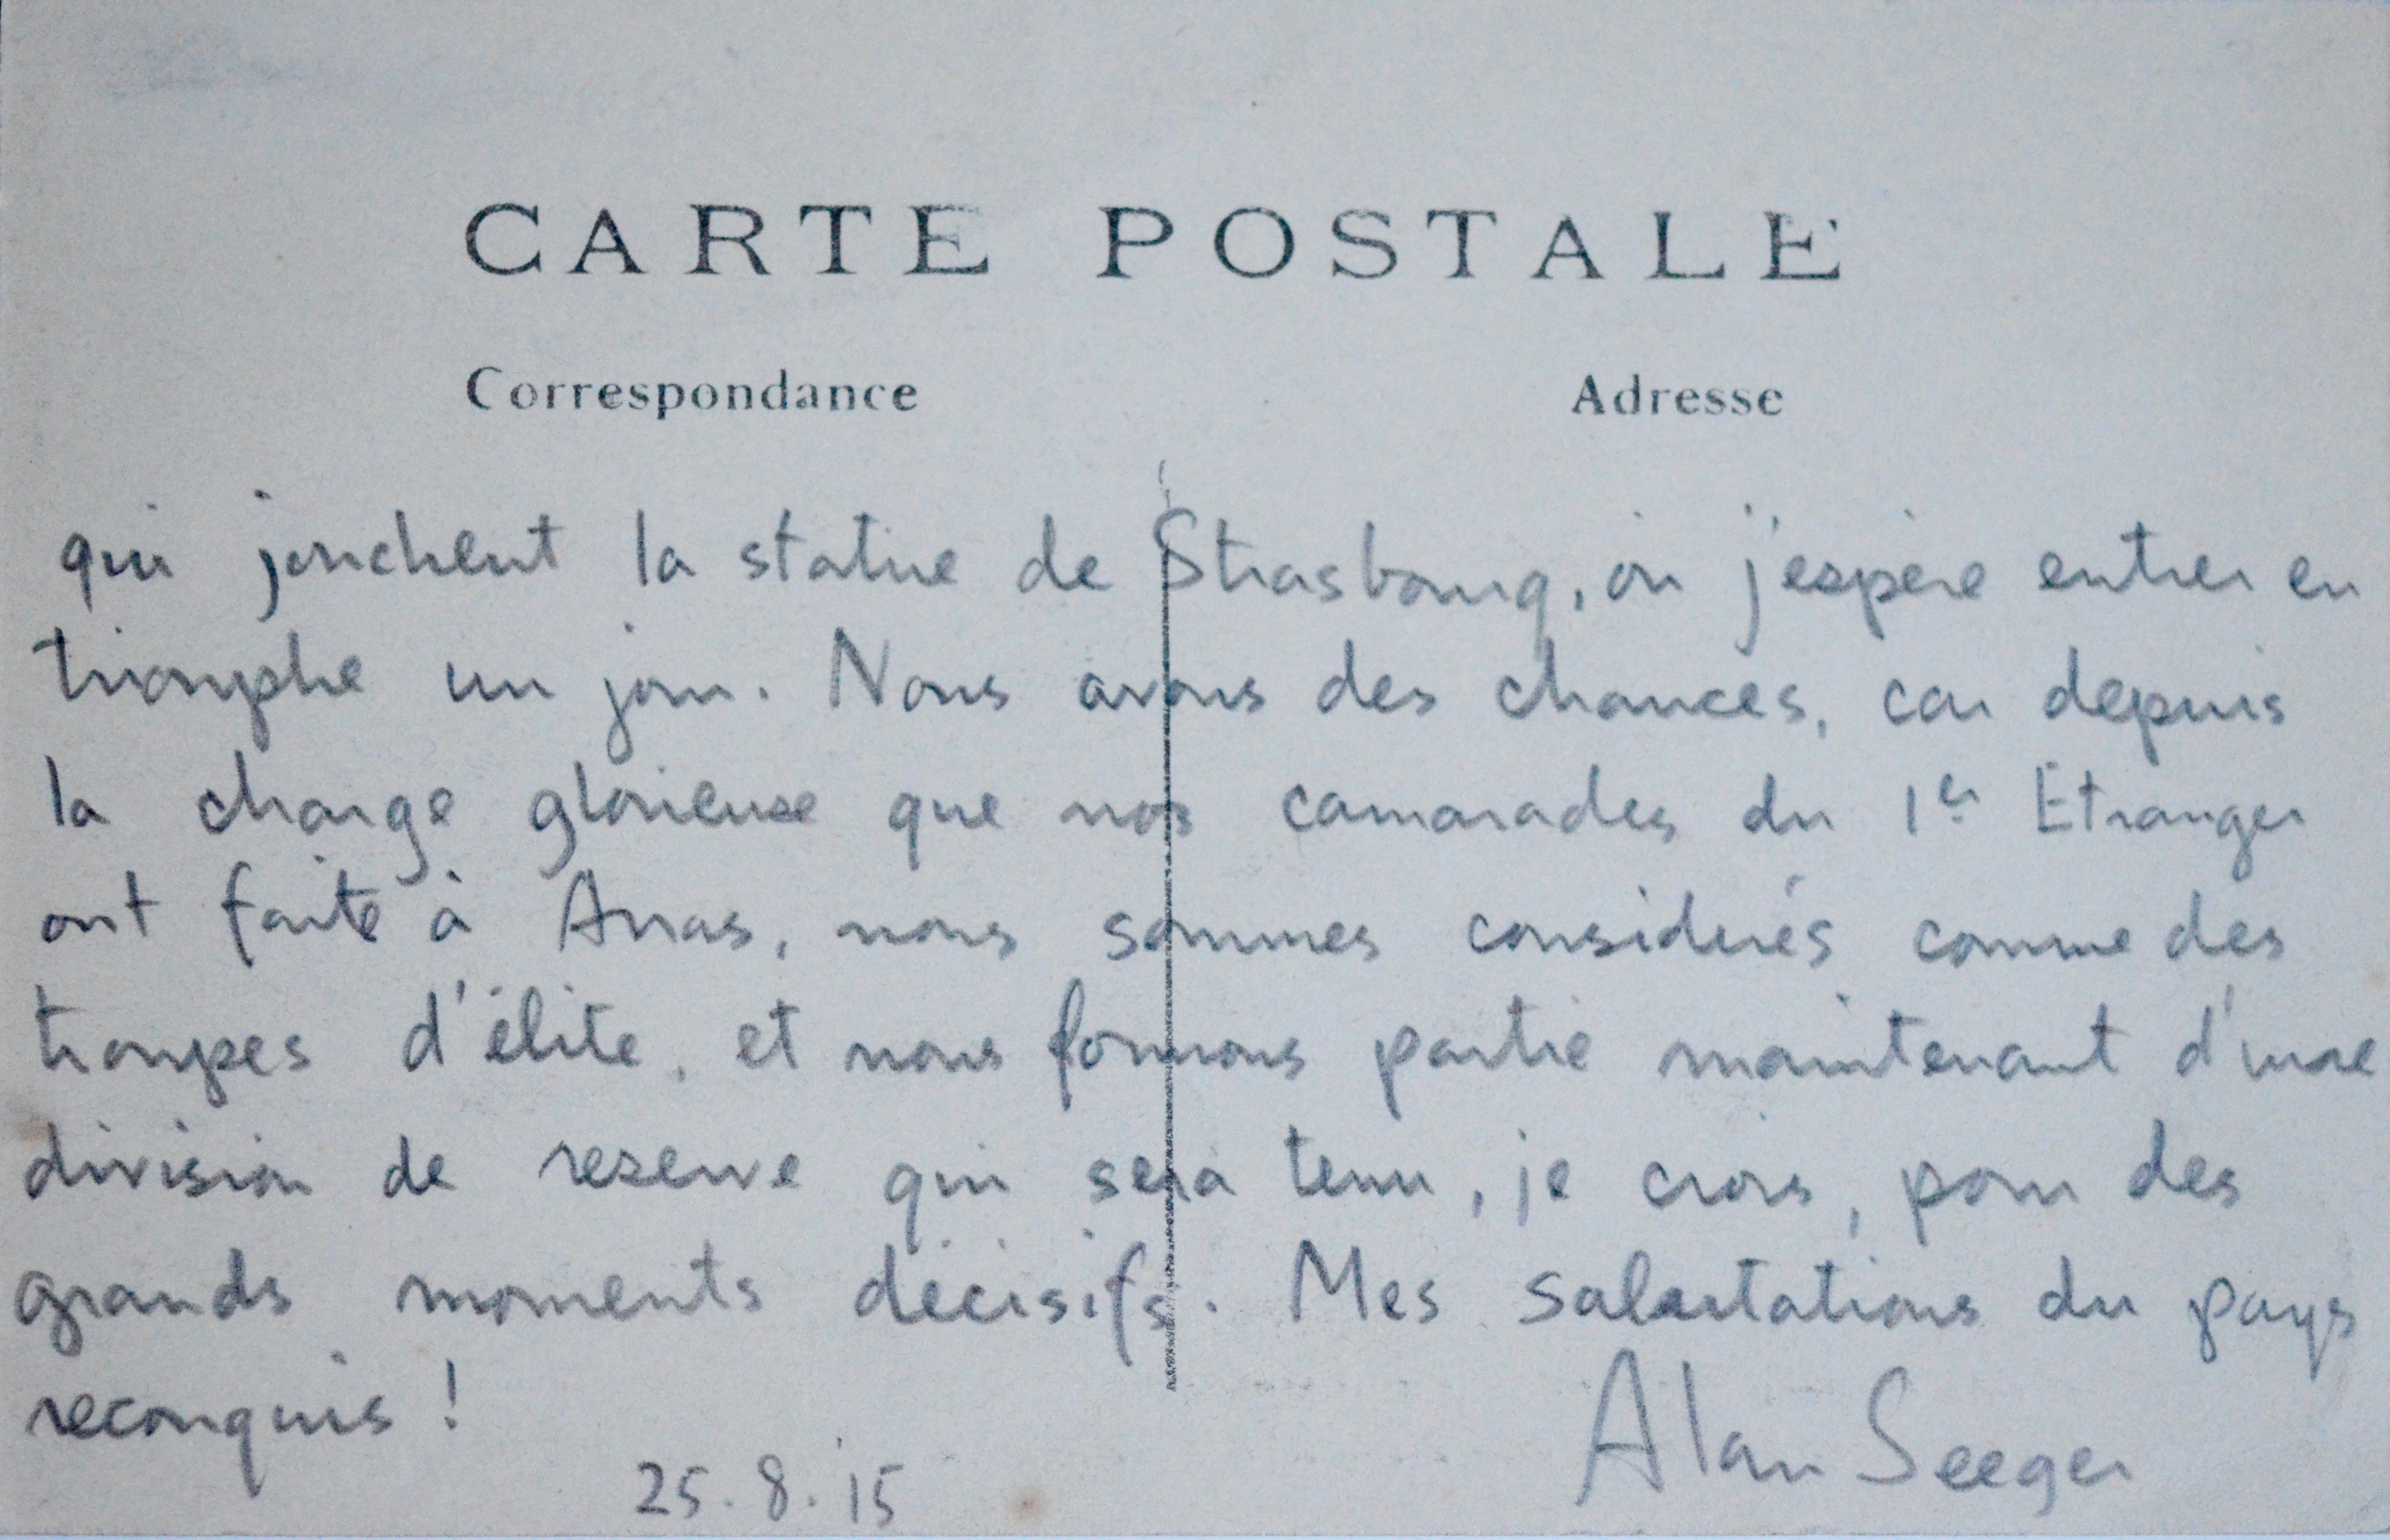 CARTE POSTALE
Correspondance Adresse
qui jonchent la statue de Strasbourg, où j'espère entrer en
triomphe un jour. Nous avons des chances, car depuis
la charge glorieuse que nos camarades du 1er Etranger
ont faite à Arras, nous sommes considerés comme des
troupes d'élite, et nous formons partie maintenant d'une
division de reserve qui sera tenu, je crois, pour des
grands moments décisifs. Mes salutations du pays
reconquis !
25.8.15 Alan Seeger